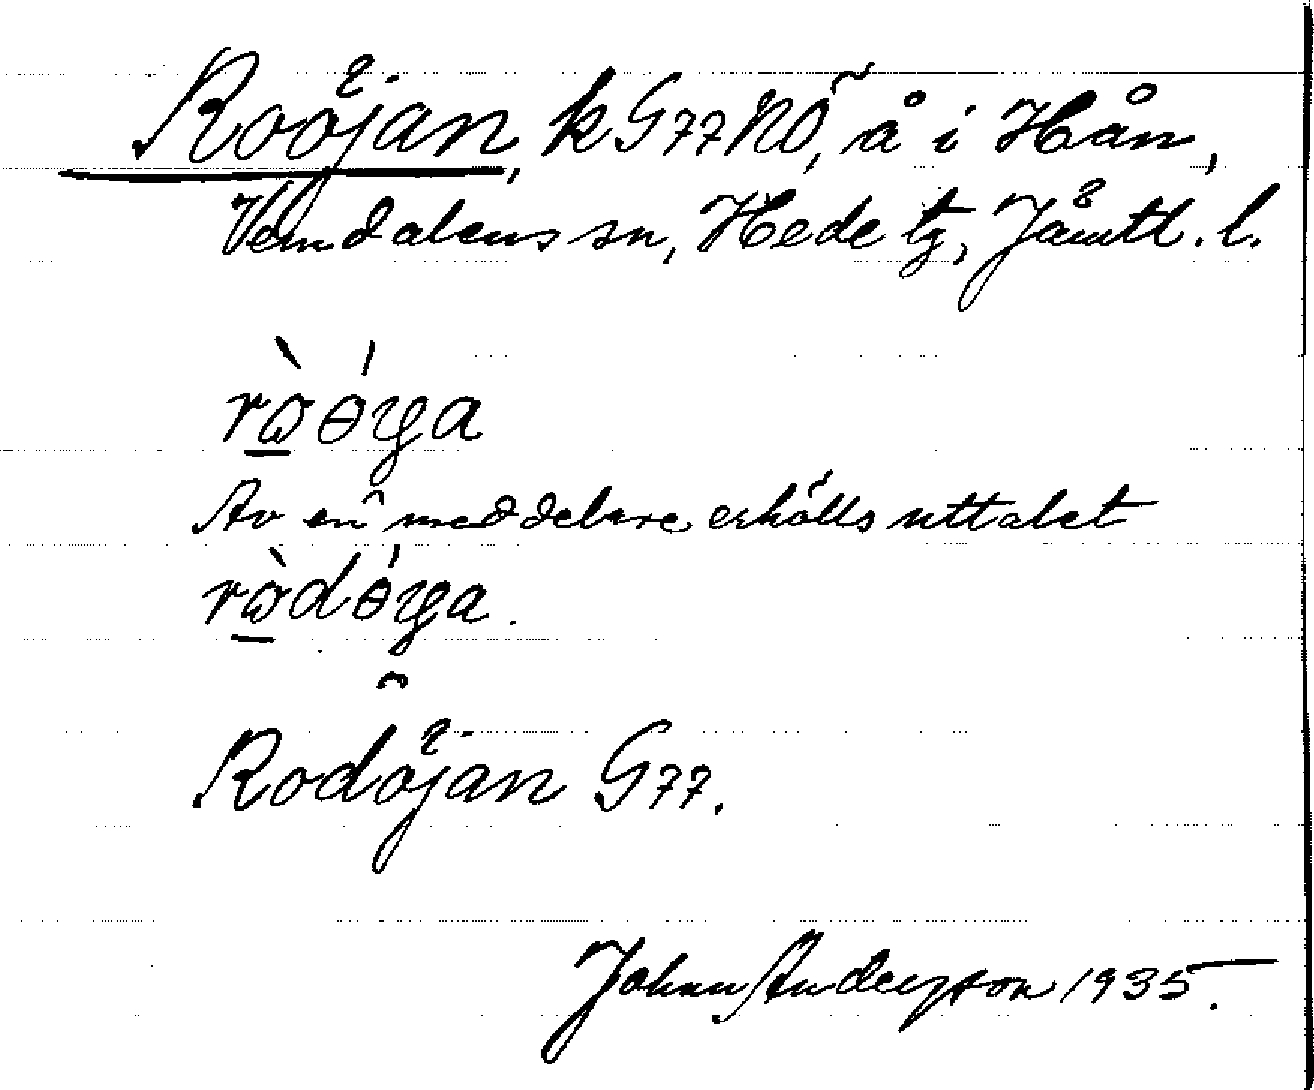 Rodöjan, k G77NÖ, å i Hån,
Vemdalens sn, Hede tg, Jämtl. l.
rɷ̀ɵ́ya
Av en meddelare erhölls uttalet
rɷ̀dɵ́ya.
Rodöjan G77.
Johan Andersson 1935.